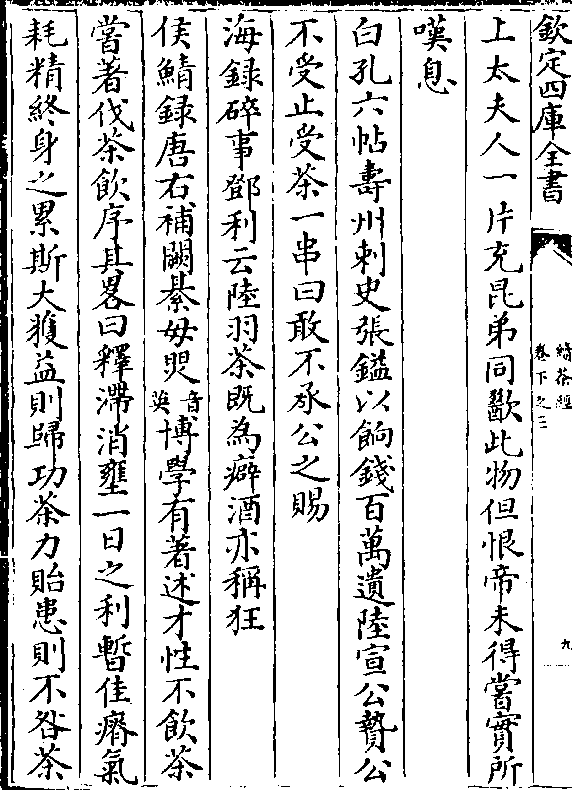 欽定四庫全書
續茶經
卷下之三
九
上太夫人一片充昆弟同歠此物但恨帝未得嘗實所
嘆息
白孔六帖壽州刺史張鎰以餉錢百萬遺陸宣公贄公
不受止受茶一串曰敢不承公之賜
海錄碎事鄧利云陸羽茶既為癖酒亦稱狂
侯鯖錄唐右補闕綦毋煚音英博學有著述才性不飲茶
嘗著伐茶飲序其畧曰釋滯消壅一日之利暫佳瘠氣
耗精終身之累斯大獲益則歸功茶力貽患則不咎茶